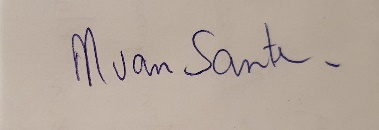 M van Sante.